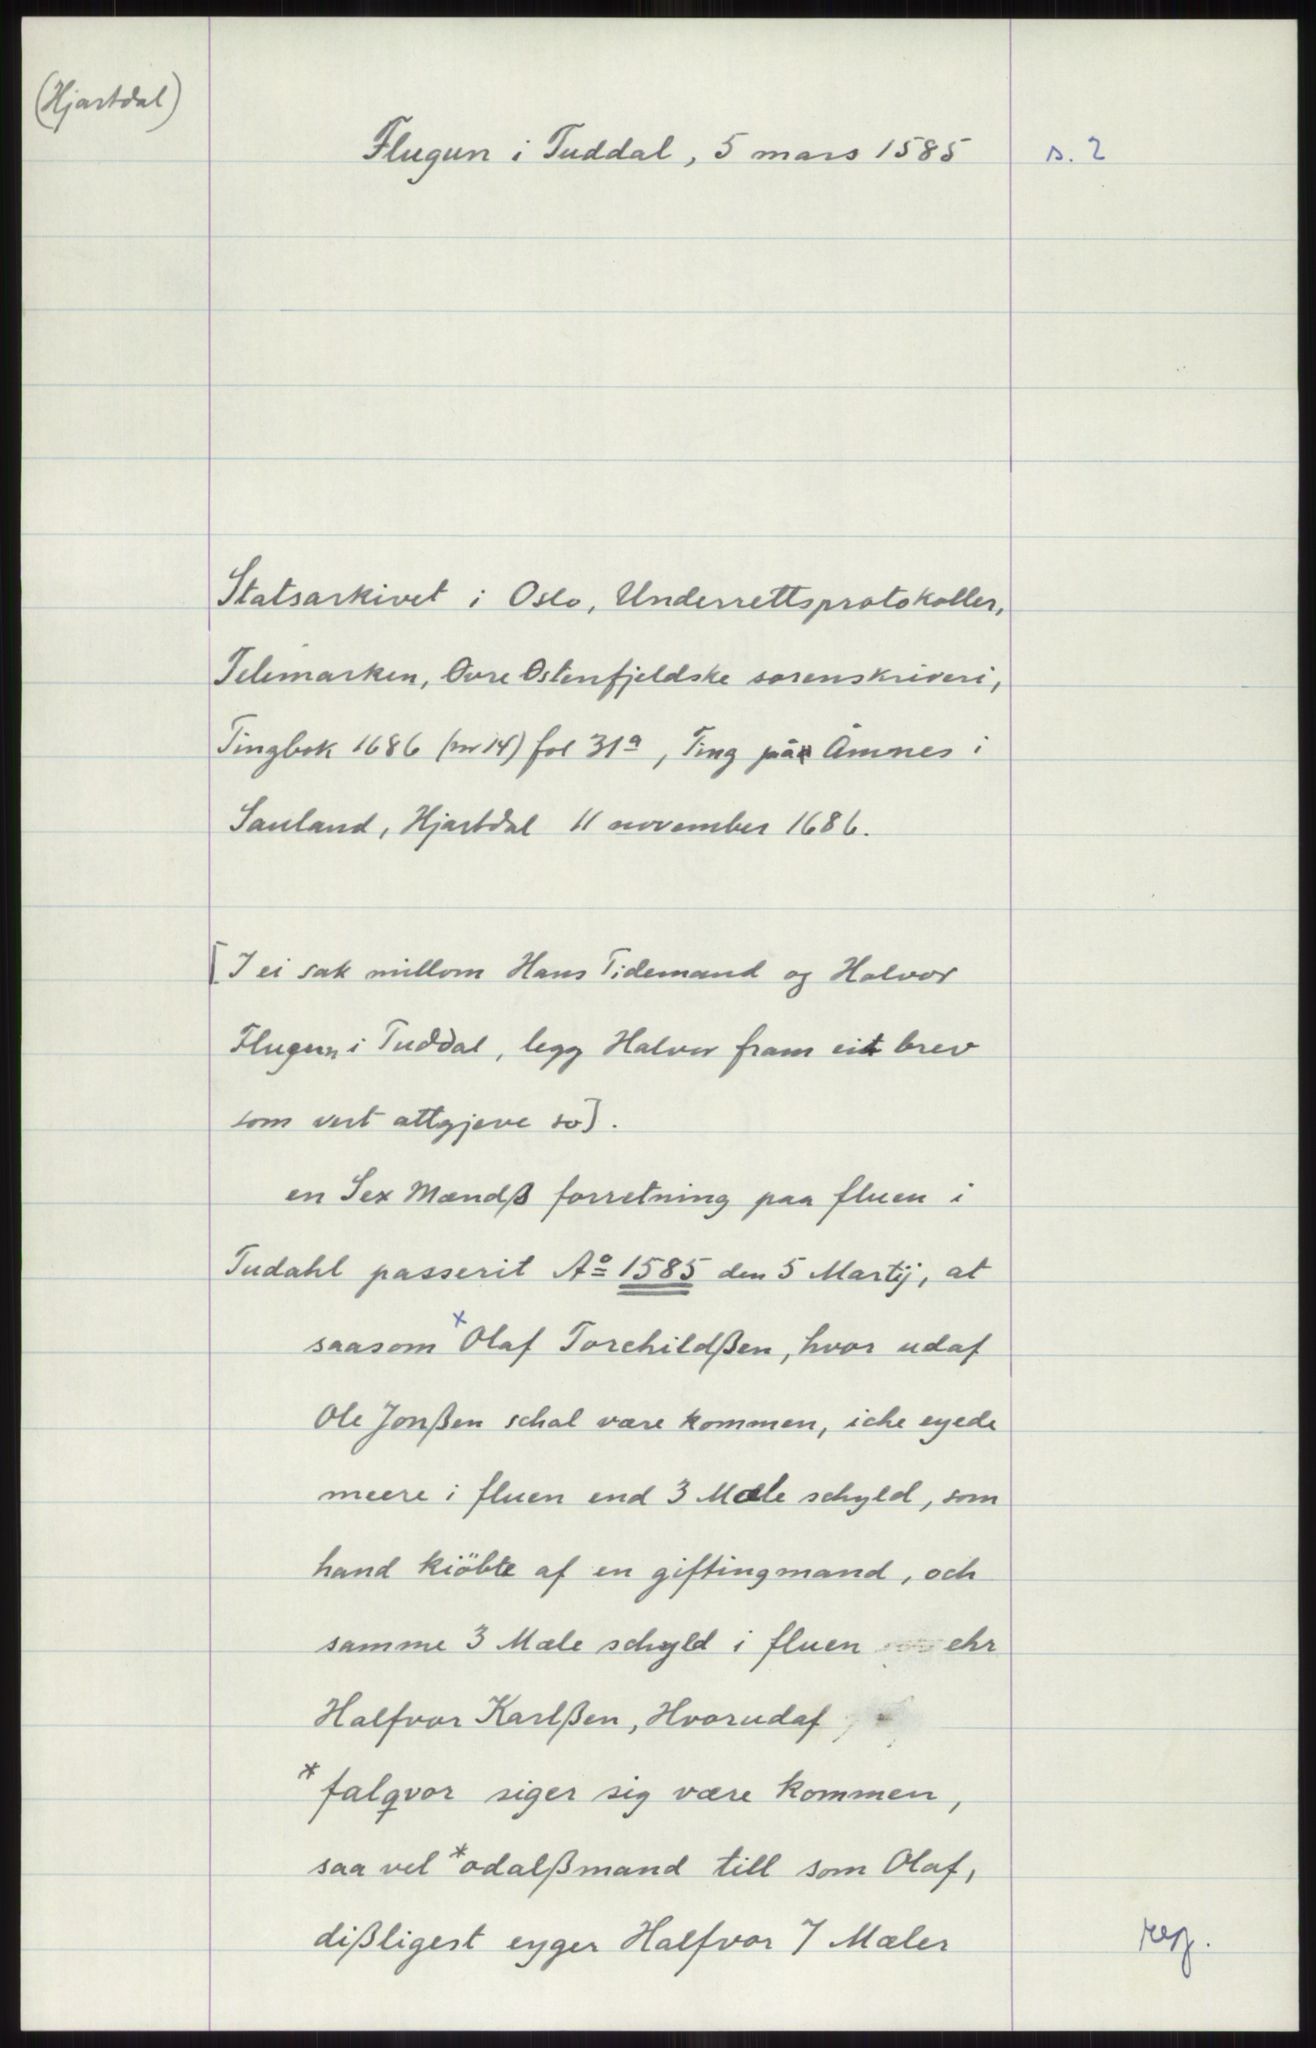 (Hjartdal)
Flugun i Tuddal, 5 mars 1585
s. 2
Statsarkivet i Oslo, Underrettsprotokoller,
Telemarken, Øvre Østenfjeldske sorenskriveri,
Tingbok 1686 (nr 14) fol 31a, Ting på Åmnes i
Sauland, Hjartdal 11 november 1686.
[I ei sak millom Hans Tidemand og Halvor
Flugun i Tuddal, legg Halvor fram eit brev
som vert attgjeve so].
en Sex Mændß forretning paa fluen i
Tudahl passerit Aº 1585 den 5 Martij, at
saasom x Olaf Torchildßen, hvor udaf
Ole Jonßen schal være kommen, iche eyede
meere i fluen end 3 Mæle schyld, som
hand kiöbte af en giftingmand, och
samme 3 Mæle schyld i fluen ehr
Halfvor Karlßen, Hvorudaf
* falqvor siger sig være kommen,
saa vel *odalßmand till som Olaf,
dißligest eyger Halfvor 7 Mæler
reg.